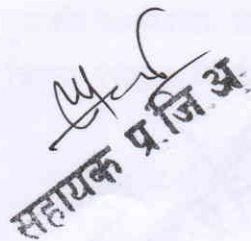 सहायक प्र.जि.अ.